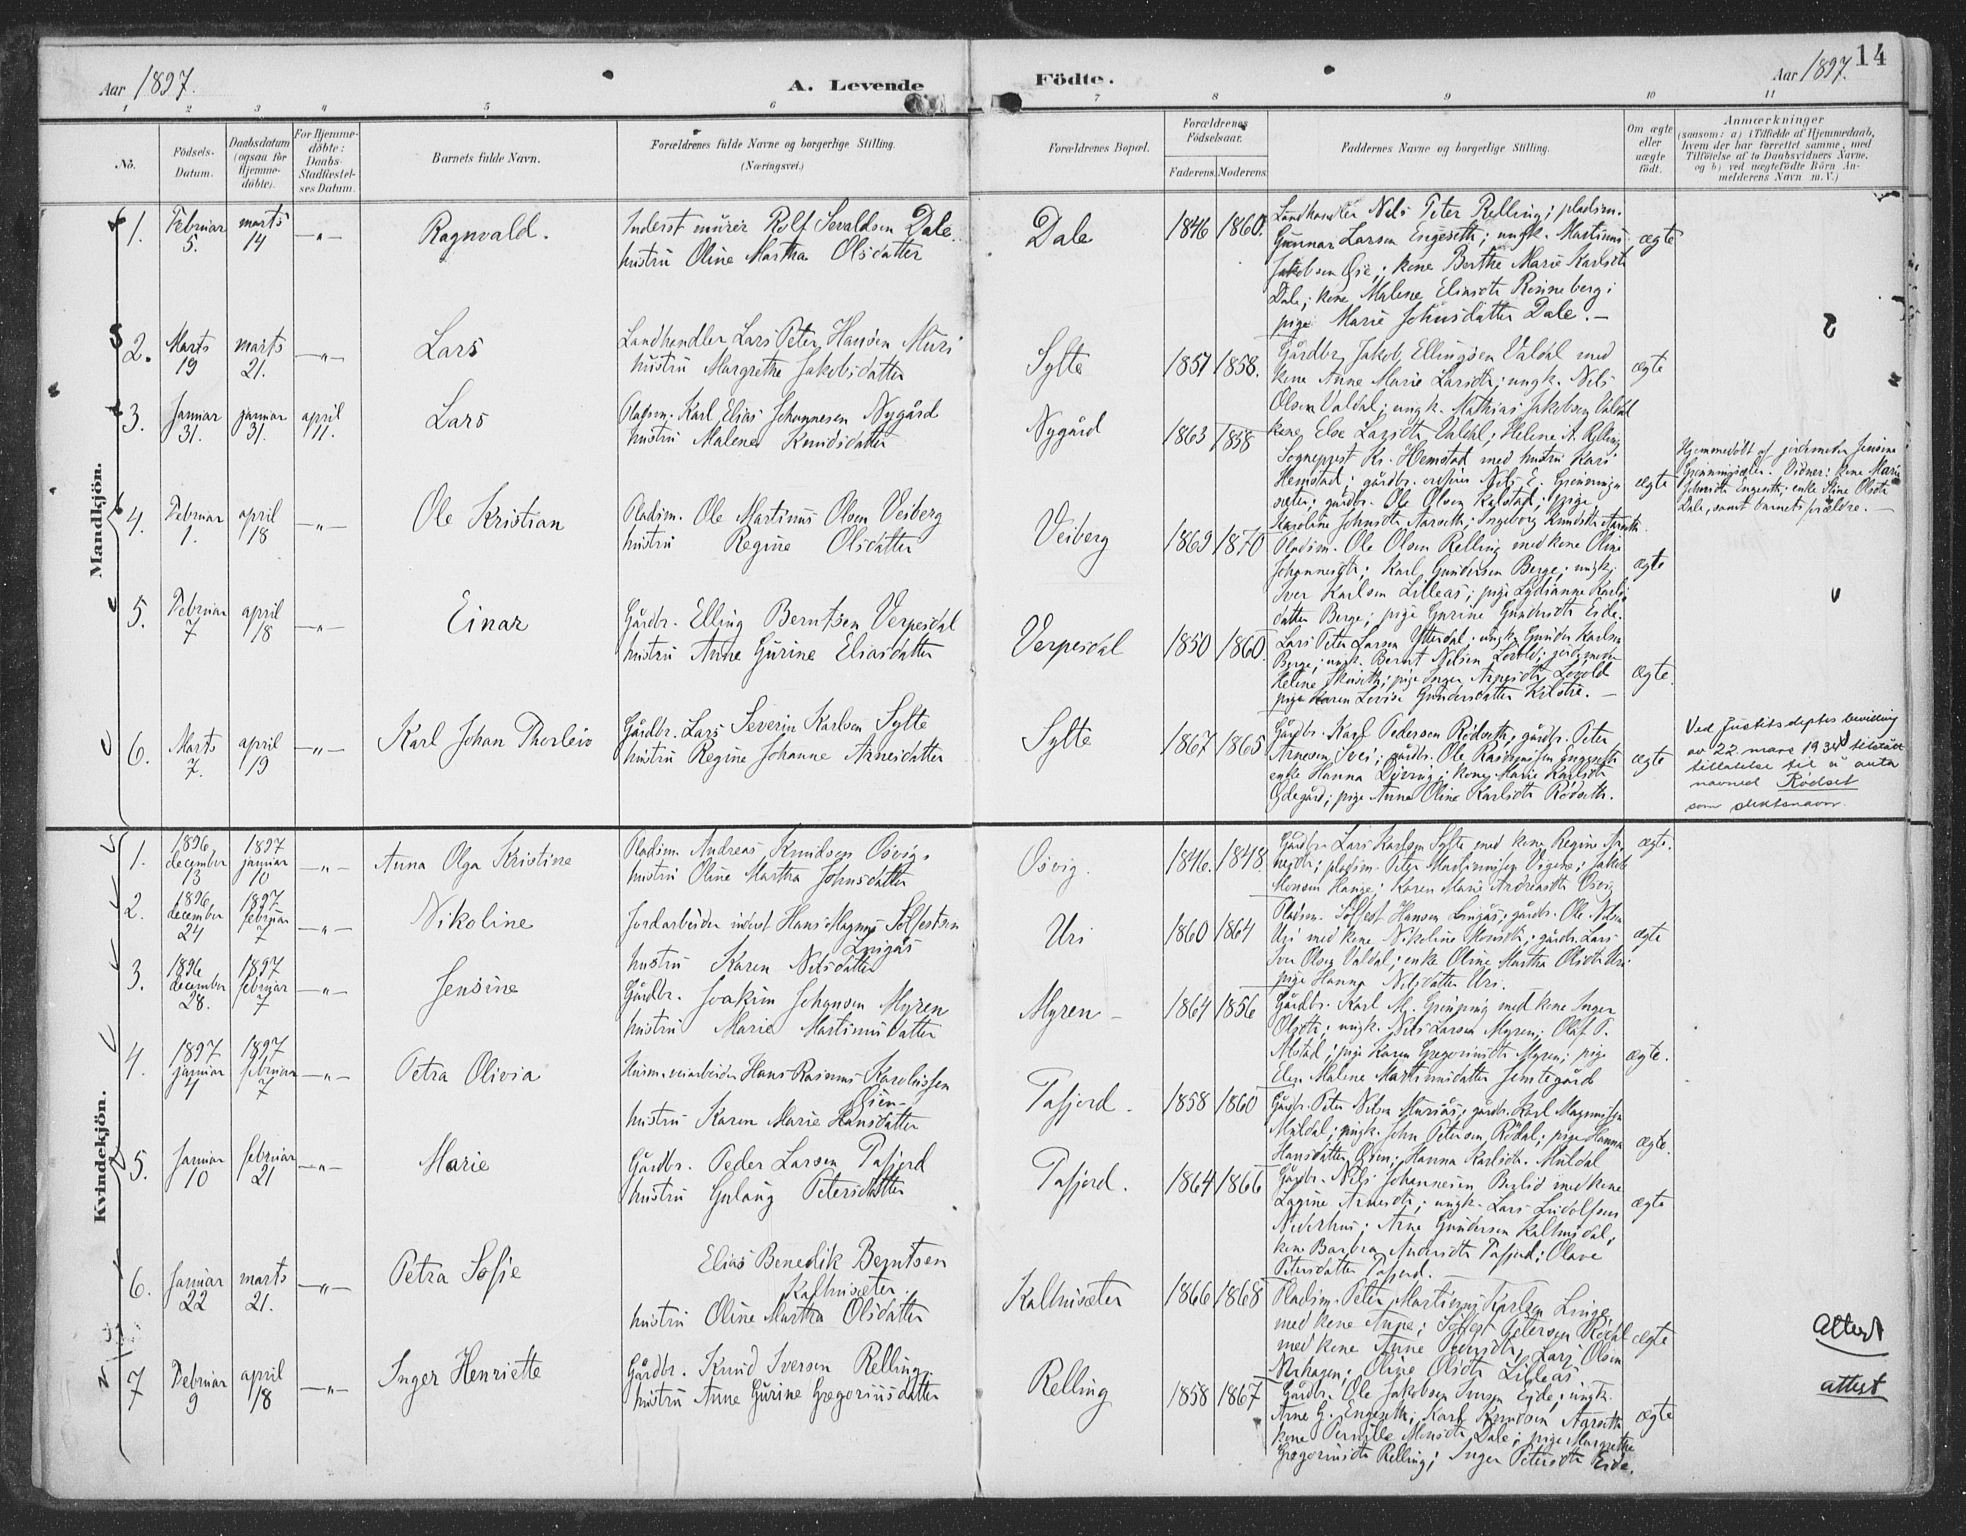 Aar 1897.
A. Levende
Födte.
Aar 1897.
14
1 2 3 4 5 6 7 8 9 10 11
No.
Födsels-Datum.
Daabsdatum (ogsaa for Hjemme-döbte).
For Hjemme-döbte: Daabs-Stadfæstel-ses Datum.
Barnets fulde Navn.
Forældrenes fulde Navne og borgerlige Stilling. (Næringsvei.)
Forældrenes Bopæl.
Forældrenes Födselsaar.
Faderens. Moderens.
Faddernes Navne og borgerlige Stilling.
Om ægte eller uægte födt.
Anmærkninger
(saasom: a) i Tilfælde af Hjemmedaab, hvem der har forrettet samme, med Tilföielse af to Daabsvidners Navne, og b) ved uægtefödte Börn An-melderens Navn m. V.)
Mandkjön.
1. Februar 5. marts 14 —„— Ragnvald. Inderst murer Rolf Sevaldsen Dale.
hustru Oline Martha Olsdatter
Dale 1846 1860. Landhandler Nils Peter Relling; pladsm.
Gunnar Larsen Engeseth; ungk. Martinus
Jakobsen Øie; kone Berthe Marie Karlsdtr
Dale; kone Malene Eliasdtr Rønneberg;
pige Marie Johnsdatter Dale. —
ægte
2. Marts 19 marts 21. —„— Lars Landhandler Lars Peter Hansen Muri
hustru Margrethe Jakobsdatter
Sylte 1851 1858. Gårdbr Jakob Ellingsen Valdal med
kone Anne Marie Larsdtr; ungk. Nils
Olsen Valdal; ungk. Mathias Jakobsen Valdal
kone Else Larsdtr Valdal; Helene A. Relling
ægte
3. Januar 31. januar 31. april 11. Lars Pladsm. Karl Elias Johannesen Nygård
hustru Malene Knudsdatter
Nygård 1863 1858 Sogneprest Kr. Hemstad med hustru Kari
Hemstad; gårdbr. Nils E. Grønning-
sæter; gårdbr. Ole Olsen Kilstad; pige
Karoline Johnsdtr Aarseth; Ingeborg Knudsdtr Aarseth.
ægte
Hjemmedøbt af jordemoder Jensine
Grønningsæter. Vidner: kone Marie
Engeseth; enke Stine Olsdtr
Dale, samt barnets forældre. —
4. Februar 1. april 18 —„— Ole Kristian Pladsm. Ole Martinus Olsen Veiberg
hustru Regine Olsdatter
Veiberg 1869 1870 Pladsm. Ole Olsen Relling med kone Oline
Johannesdtr; Karl Gundersen Berge; ungk.
Iver Karlsen Lilleås; pige Lydianne Karls-
datter Berge; pige Gurine Gundersdtr Eide.
ægte
5. Februar 7 april 18 —„— Einar Gårdbr. Elling Berntsen Verpesdal
hustru Anne Gurine Eliasdatter
Verpesdal 1850 1860. Lars Peter Larsen Ytterdal; ungk. Gunder Karlsen
Berge; ungk. Bernt Nilsen Løvold; jordemoder
Helene; pige Inger Løvold
pige Karen Lovise Gundersdatter Kilstie. —
ægte.
6. Marts 7. april 19 —„— Karl Johan Thorleiv Gårdbr. Lars Severin Karlsen Sylte
hustru Regine Johanne Arnesdatter
Sylte 1867 1865 Gårdbr. Karl Pedersen Rødseth; gårdbr. Peter
Arnesen; gårdbr. Ole Rasmussen Engeseth
enke Hanna Døving; kone Marie Karlsdtr
Ødegård; pige Anna Oline Karlsdtr Rødseth.
ægte
Ved Justitsdeptes bevilling
av 22. mars 1934 tilstått
tillatelse til å anta
navnet Rødset
som slektsnavn.
Kvindekjön.
1. 1896 december 13 1897 januar 10 —„— Anna Olga Kristine Pladsm. Andreas Knudsen Osvig.
hustru Oline Martha Johnsdatter
Osvig. 1846. 1848. Gårdbr. Lars Karlsen Sylte med kone Regine Ar-
nesdtr; pladsm. Peter Martinussen; Jakob
Monsen Hauge; Karen Marie Andreasdtr Osvig
ægte.
2. 1896. december 24 1897 februar 7 —„— Nikoline Jordarbeider inderst Hans Magnus Sølfestsen
Lingås
hustru Karen Nilsdatter
Uri 1860 1864 Pladsm. Sølfest Hansen Lingås; gårdbr. Ole Nilsen
Uri med kone Nikoline Monsdtr; gårdbr. Lars
Iver Olsen Valdal; enke Oline Martha Olsdtr Uri
pige Hanna Nilsdatter Uri.
ægte
3. 1896 december 28. 1897 februar 7 —„— Jensine Gårdbr. Joakim Johansen Myren
hustru Marie Martinusdatter
Myren — 1864 1856 Gårdbr. Karl M. Grønning med kone Inger
Olsdtr; ungk. Nils Larsen Myren; Olaf P.
Alstad; pige Karen Gregoriusdtr Myren; pige
Elen Malene Martinusdatter Jemtegård
ægte.
4. 1897 januar 4 1897 februar 7 —„— Petra Olivia Husm. veiarbeider Hans Rasmus Karolussen
Øien —
hustru Karen Marie Hansdatter
Tafjord. 1858 1860 Gårdbr. Peter Nilsen Muriås; gårdbr. Karl Magnussen
Muldal; ungk. John Petersen Rødal; pige Hanna
Hansdatter Øien; Hanna Karlsdtr. Muldal
ægte.
5. Januar 10 februar 21 —„— Marie Gårdbr. Peder Larsen Tafjord
hustru Gulaug Petersdatter
Tafjord. 1864 1866 Gårdbr. Nils Johannesen Berlid med kone
Lagine Arnesdtr; ungk. Lars Ludolfsen
Nederhus; Arne Gundersen Kalhusdal;
kone Barbra Andersdtr Tafjord; Olave
Petersdatter Tafjord.
ægte
6. Januar 22 marts 21. —„— Petra Sofie Elias Benedik Berntsen
Kalhusæter.
hustru Oline Martha Olsdatter
Kalhusæter 1866 1868 Pladsm. Peter Martinus Karlsen Linge
med kone; Sølfest Petersen Rødal
med kone Anne Pedersdtr, Lars Olsen
Nerhagen; Oline Olsdtr Lilleås
ægte
attest
7 Februar 9 april 18 —„— Inger Henriette Gårdbr. Knud Iversen Relling
hustru Anne Gurine Gregoriusdatter
Relling 1858 1867 Gårdbr. Ole Jakobsen Eide; ungk.
Arne G. Engeseth; Karl Knudsen Aarseth
kone Pernille Monsdtr Dale; pige Margrethe
Gregoriusdtr Relling; Inger Petersdtr Eide.
ægte
attest